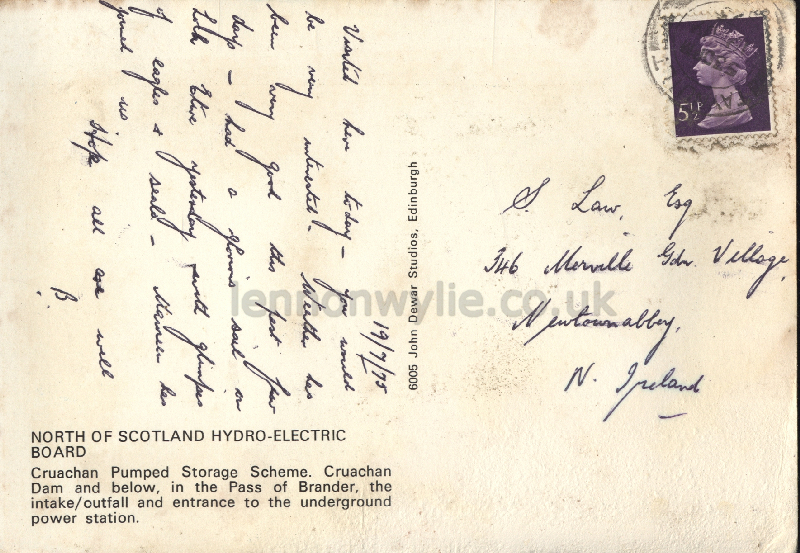 19/7/75
Visited here today – you would
be very interested. Weather has
been very good this past few
days – had a glorious sail on
Loch Etive yesterday with glimpses
of eagles & seals – Maureen has
joined us
Hope all are well
B.
6005 John Dewar Studios, Edinburgh
5½P
S. Law, Esq
346 Merville Gdn. Village,
Newtownabbey,
N. Ireland
lennonwylie.co.uk
NORTH OF SCOTLAND HYDRO-ELECTRIC
BOARD
Cruachan Pumped Storage Scheme. Cruachan
Dam and below, in the Pass of Brander, the
intake/outfall and entrance to the underground
power station.